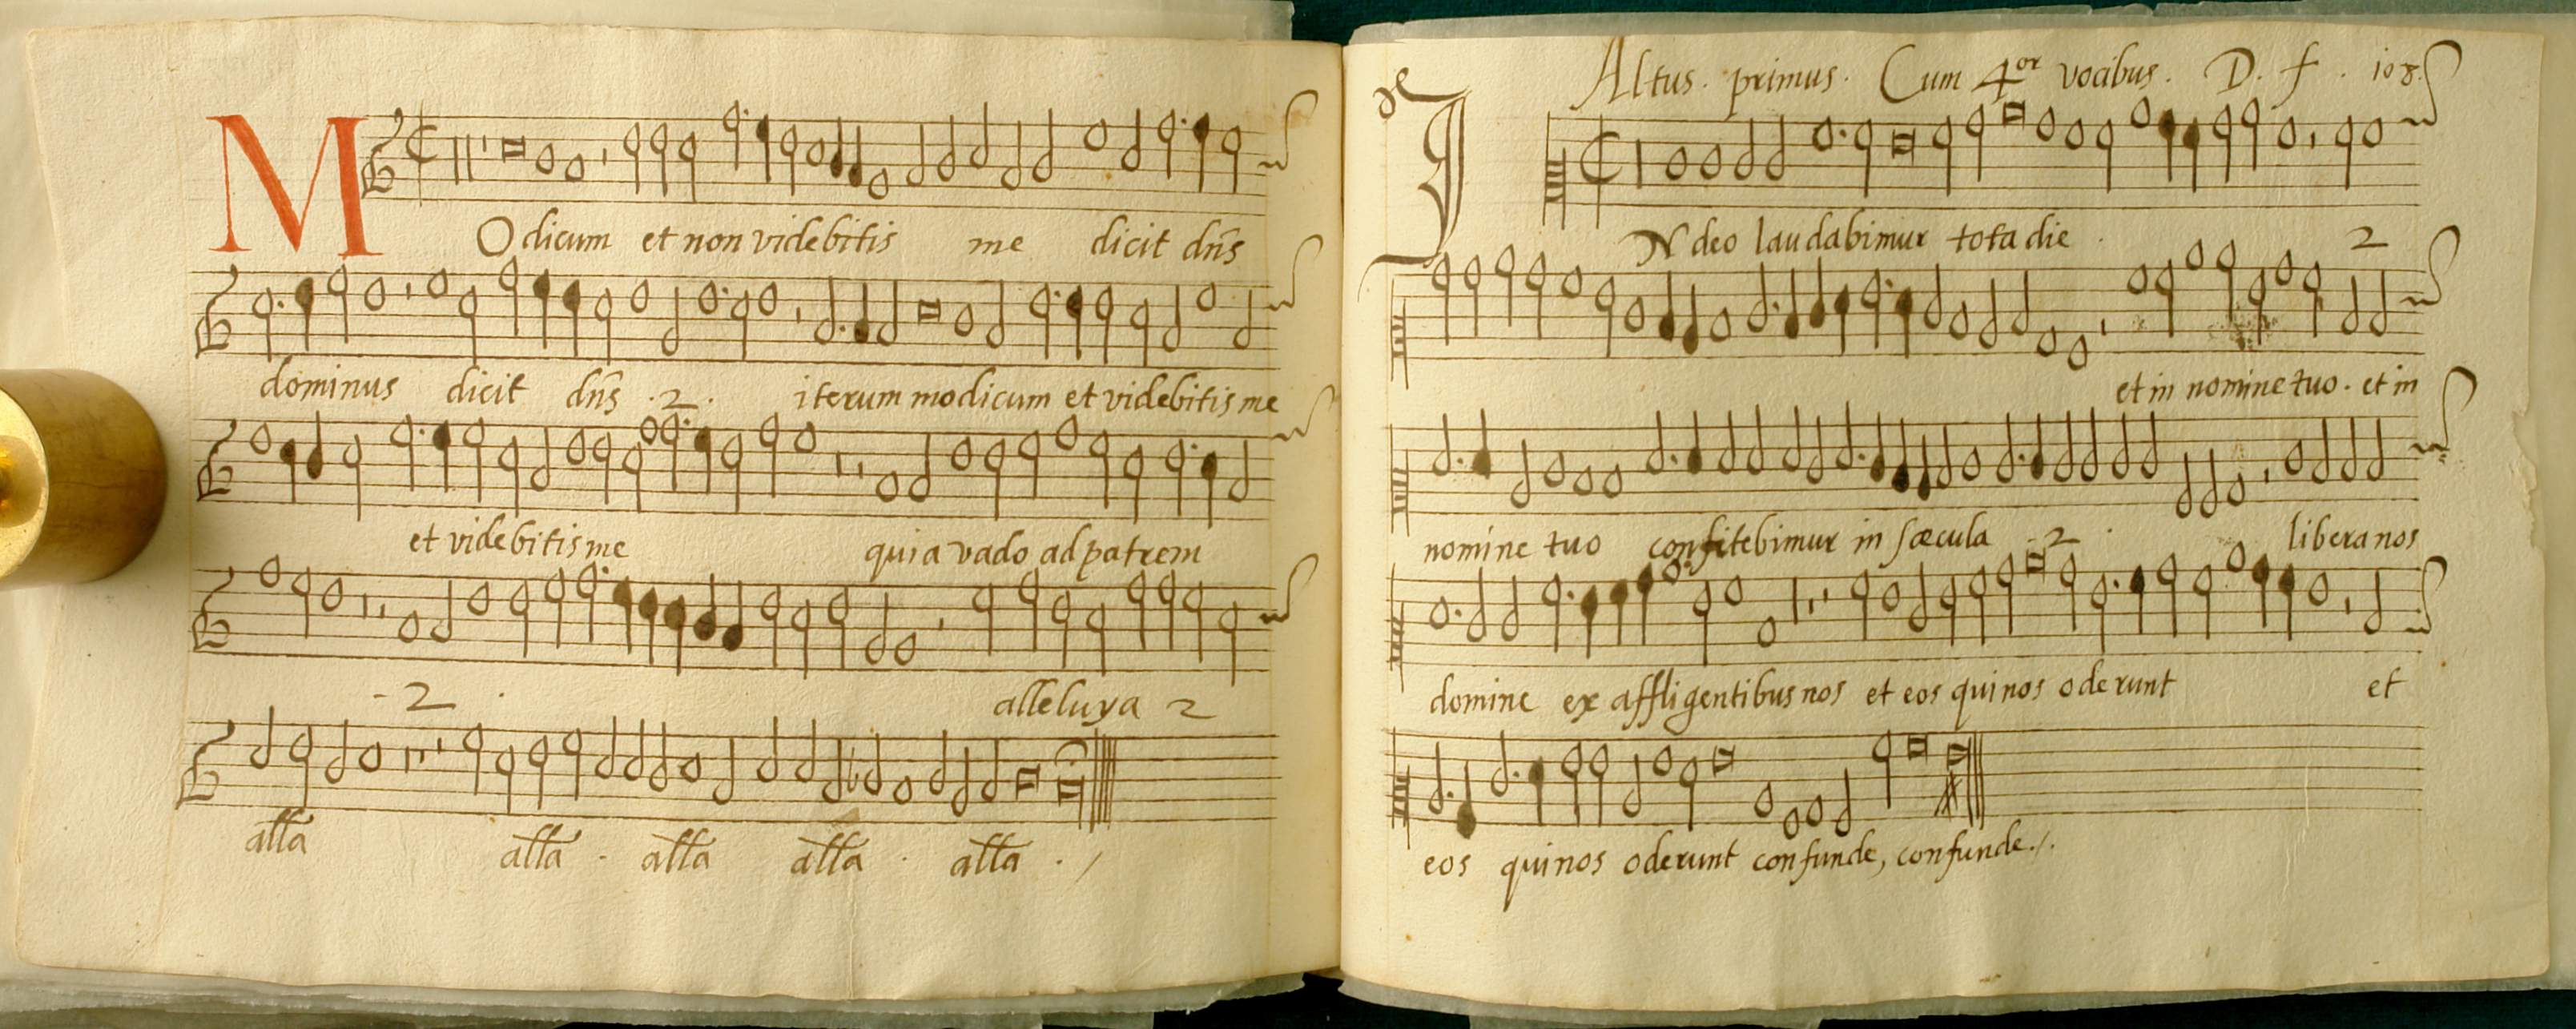 MOdicum et non videbitis me dicit dn̄s
dominus dicit dn̄s .2. iterum modicum et videbitis me
et videbitis me quia vado ad patrem
2 . alleluya 2
all̄a all̄a . all̄a all̄a . all̄a . /
Altus . primus . Cum 4or vocibus . D. f . 108.
IN deo laudabimur tota die . 2
et in nomine tuo . et in
nomine tuo confitebimur in sæcula . 2 . libera nos
domine ex affligentibus nos et eos qui nos oderunt et
eos qui nos oderunt confunde, confunde./.